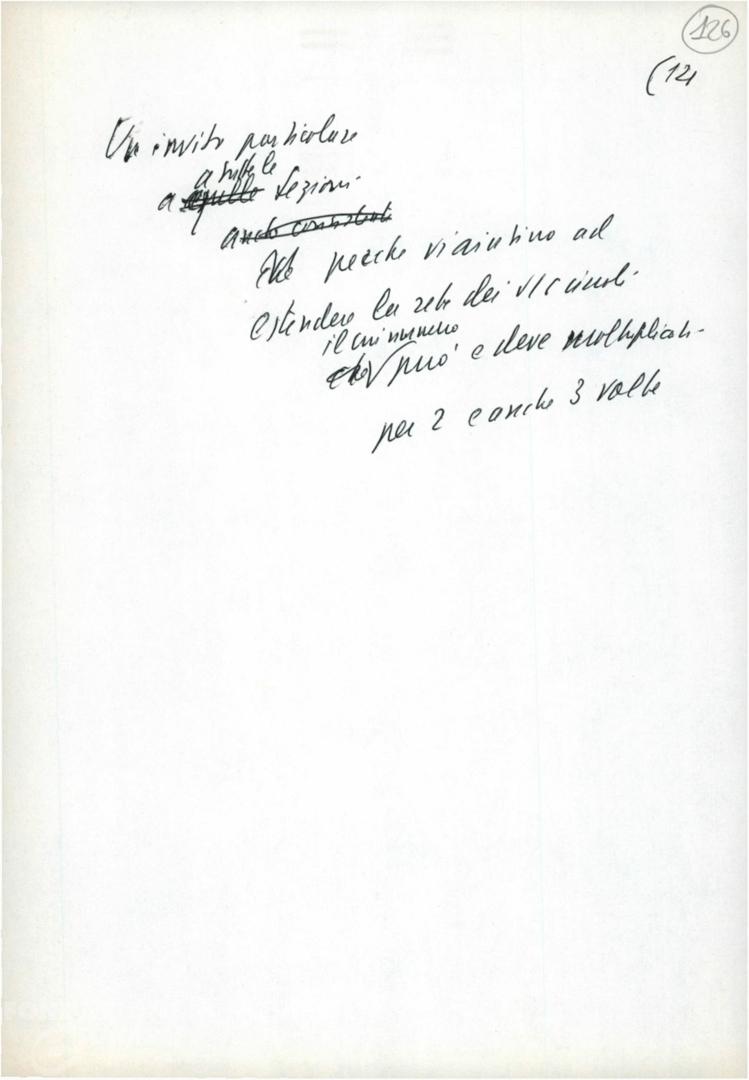 126
(12
Un invito particolare
a tutte le
a quelle Sezioni
anche
perche vi aiutino ad
estendere la rete dei circoli
il cui numero
che può e deve moltiplicarsi
per 2 e anche 3 volte